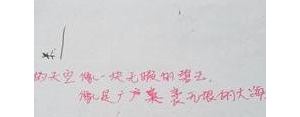 的天空像一块无暇的碧玉。
像是广广袤无垠的大海